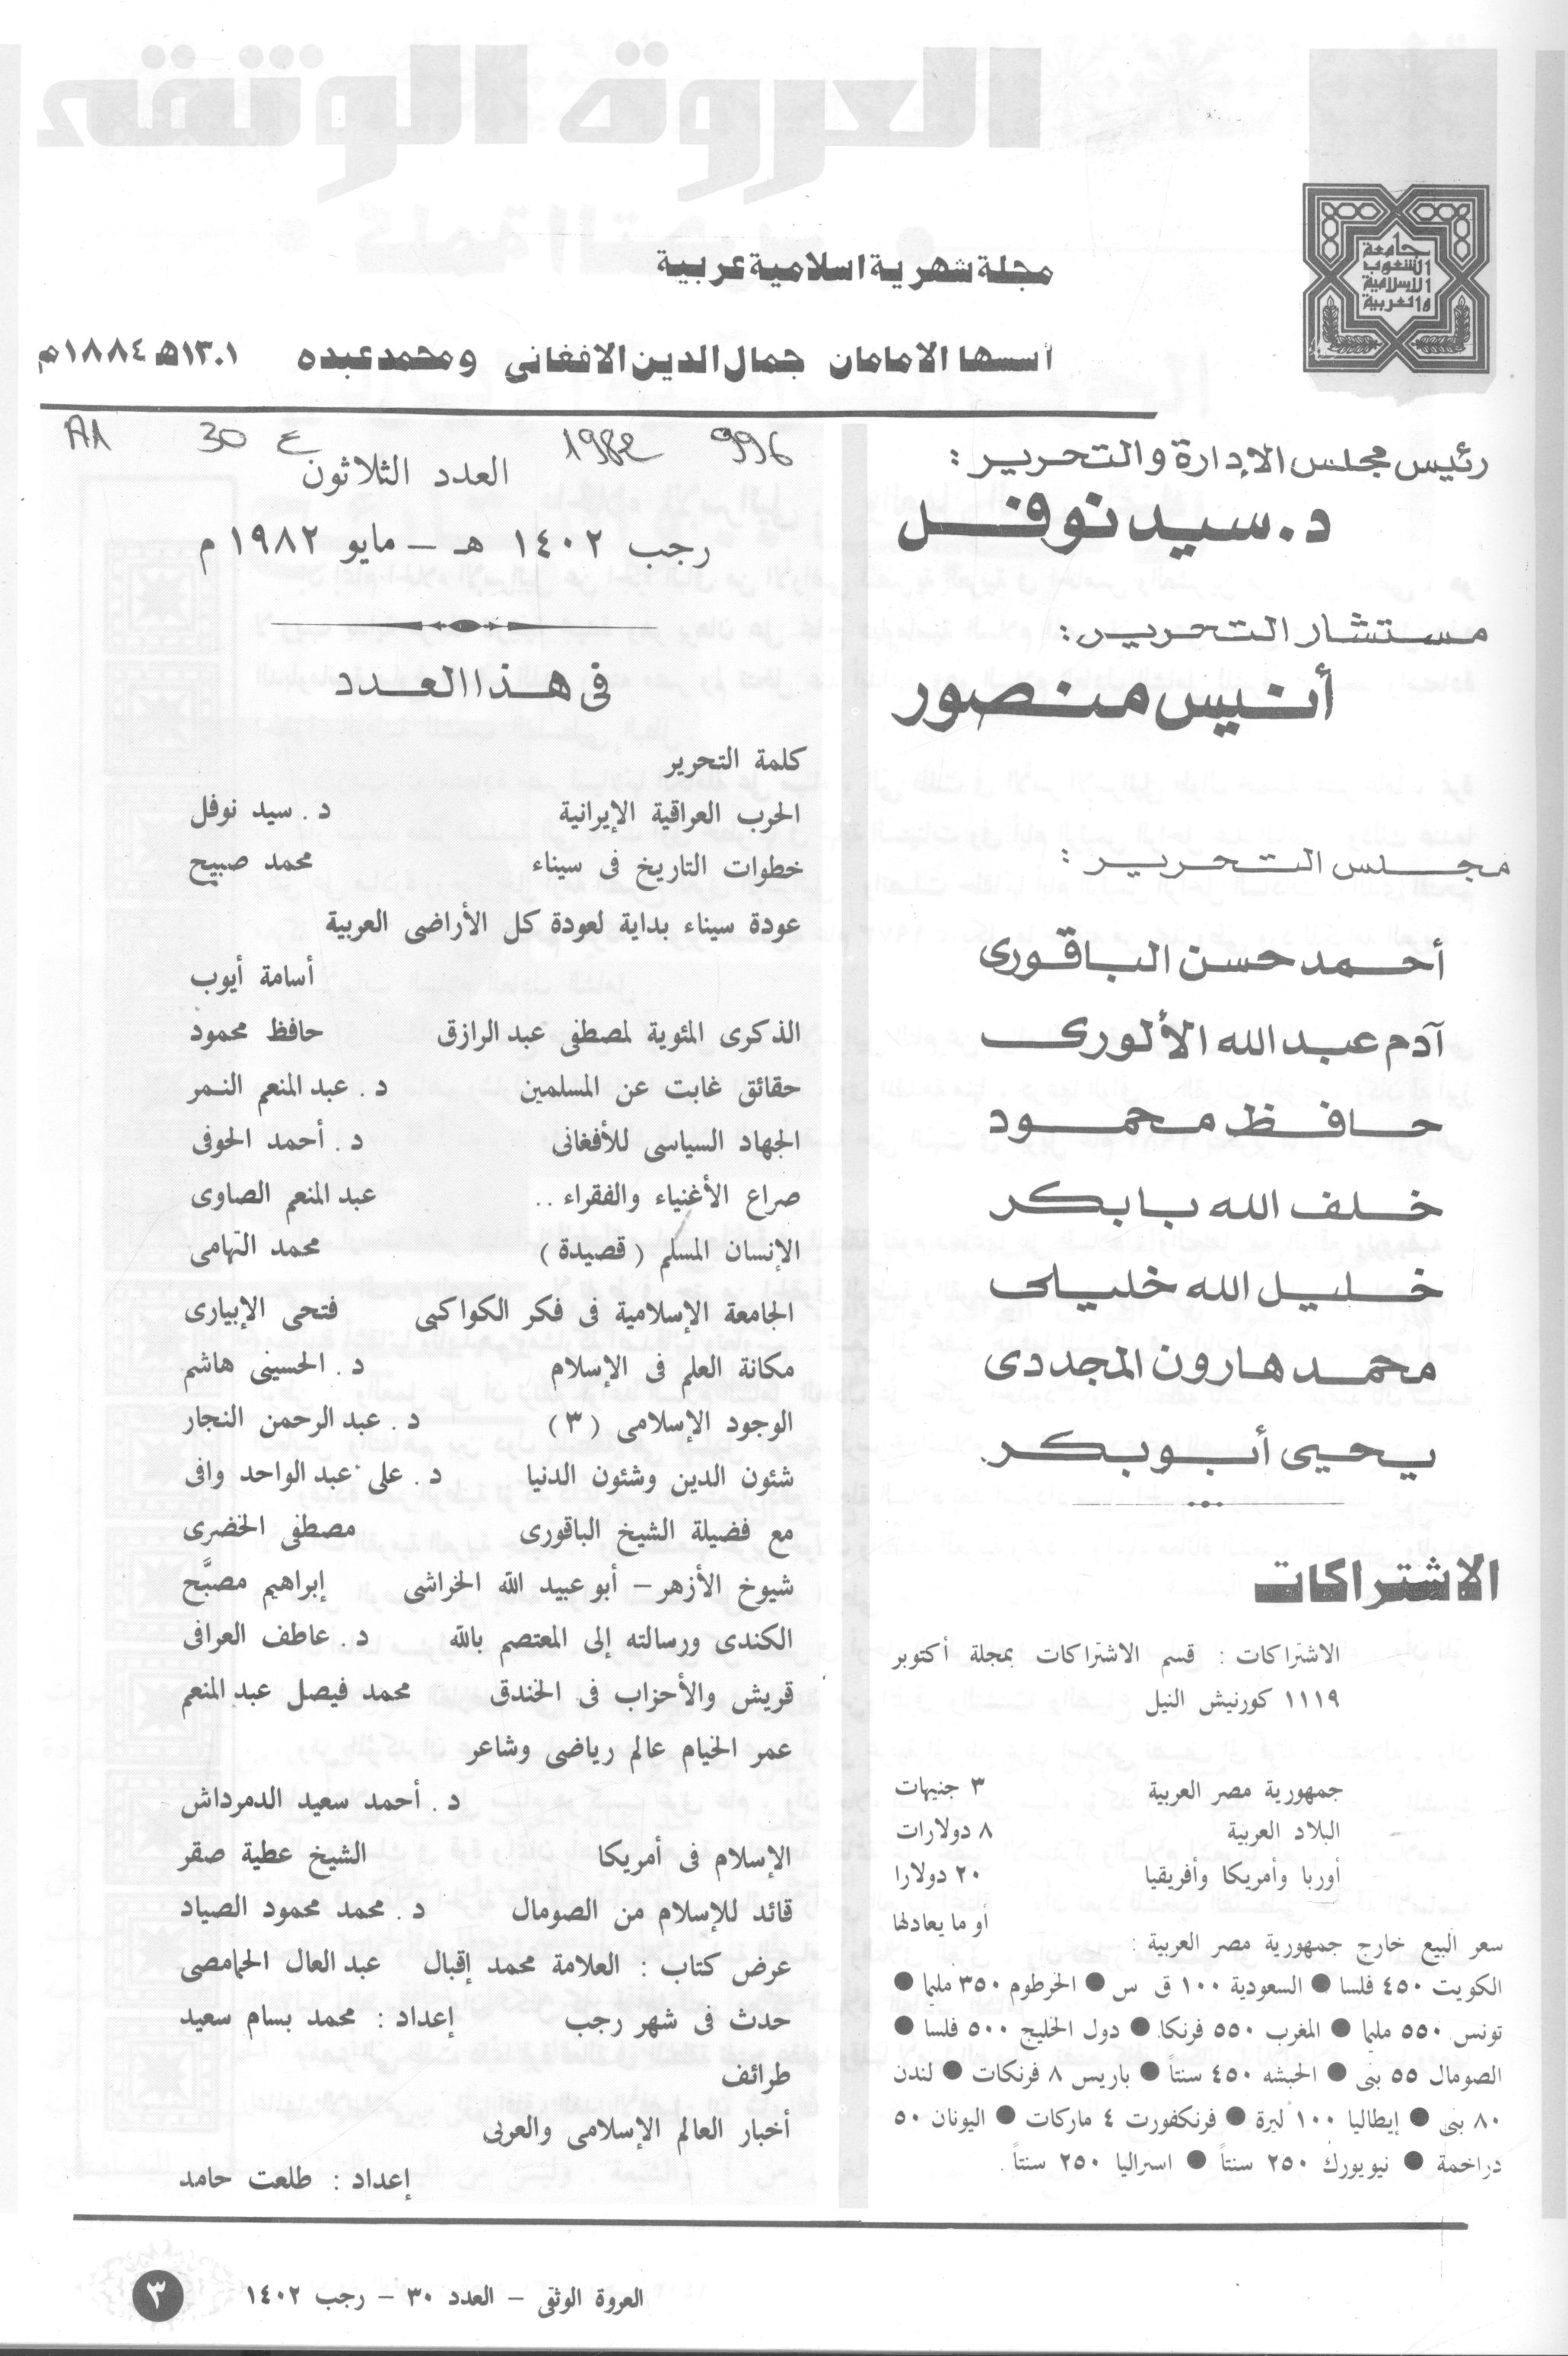 العروة الوثقى
جامعة
الشعوب
الإسلامية
والعربية
مجلة شهرية اسلامية عربية
أسسها الامامان جمال الدين الافغانى ومحمد عبده ١٣٠١هـ ١٨٨٤م
A1 30 ع 1982 996
رئيس مجلس الإدارة والتحرير :
د. سيد نوفل
مستشار التحرير :
أنيس منصور
مجلس التحرير :
أحمد حسن الباقورى
آدم عبد الله الألورى
حافظ محمود
خلف الله بابكر
خليل الله خليلى
محمد هارون المجددى
يحيى أبو بكر
الاشتراكات
الاشتراكات : قسم الاشتراكات بمجلة أكتوبر
١١١٩ كورنيش النيل
جمهورية مصر العربية ٣ جنيهات
البلاد العربية ٨ دولارات
أوربا وأمريكا وأفريقيا ٢٠ دولارا
أو ما يعادلها
سعر البيع خارج جمهورية مصر العربية :
الكويت ٤٥٠ فلسا ● السعودية ١٠٠ ق س ● الخرطوم ٣٥٠ مليما ●
تونس ٥٥٠ مليما ● المغرب ٥٥٠ فرنكا ● دول الخليج ٥٠٠ فلسا ●
الصومال ٥٥ بنى ● الحبشه ٤٥٠ سنتاً ● باريس ٨ فرنكات ● لندن
٨٠ بنى ● إيطاليا ١٠٠ ليرة ● فرنكفورت ٤ ماركات ● اليونان ٥٠
دراخمة ● نيويورك ٢٥٠ سنتاً ● استراليا ٢٥٠ سنتاً .
العدد الثلاثون
رجب ١٤٠٢ هـ – مايو ١٩٨٢ م
فى هذا العدد
كلمة التحرير
الحرب العراقية الإيرانية د. سيد نوفل
خطوات التاريخ فى سيناء محمد صبيح
عودة سيناء بداية لعودة كل الأراضى العربية
أسامة أيوب
الذكرى المئوية لمصطفى عبد الرازق حافظ محمود
حقائق غابت عن المسلمين د. عبد المنعم النمر
الجهاد السياسى للأفغانى د. أحمد الحوفى
صراع الأغنياء والفقراء .. عبد المنعم الصاوى
الإنسان المسلم ( قصيدة ) محمد التهامى
الجامعة الإسلامية فى فكر الكواكبى فتحى الإبيارى
مكانة العلم فى الإسلام د. الحسينى هاشم
الوجود الإسلامى ( ٣ ) د. عبد الرحمن النجار
شئون الدين وشئون الدنيا د. على عبد الواحد وافى
مع فضيلة الشيخ الباقورى مصطفى الخضرى
شيوخ الأزهر – أبو عبيد الله الخراشى إبراهيم مصبَّح
الكندى ورسالته إلى المعتصم بالله د. عاطف العراقى
قريش والأحزاب فى الخندق محمد فيصل عبد المنعم
عمر الخيام عالم رياضى وشاعر
د. أحمد سعيد الدمرداش
الإسلام فى أمريكا الشيخ عطية صقر
قائد للإسلام من الصومال د. محمد محمود الصياد
عرض كتاب : العلامة محمد إقبال عبد العال الحمامصى
حدث فى شهر رجب إعداد : محمد بسام سعيد
طرائف
أخبار العالم الإسلامى والعربى
إعداد : طلعت حامد
العروة الوثقى – العدد ٣٠ – رجب ١٤٠٢
٣